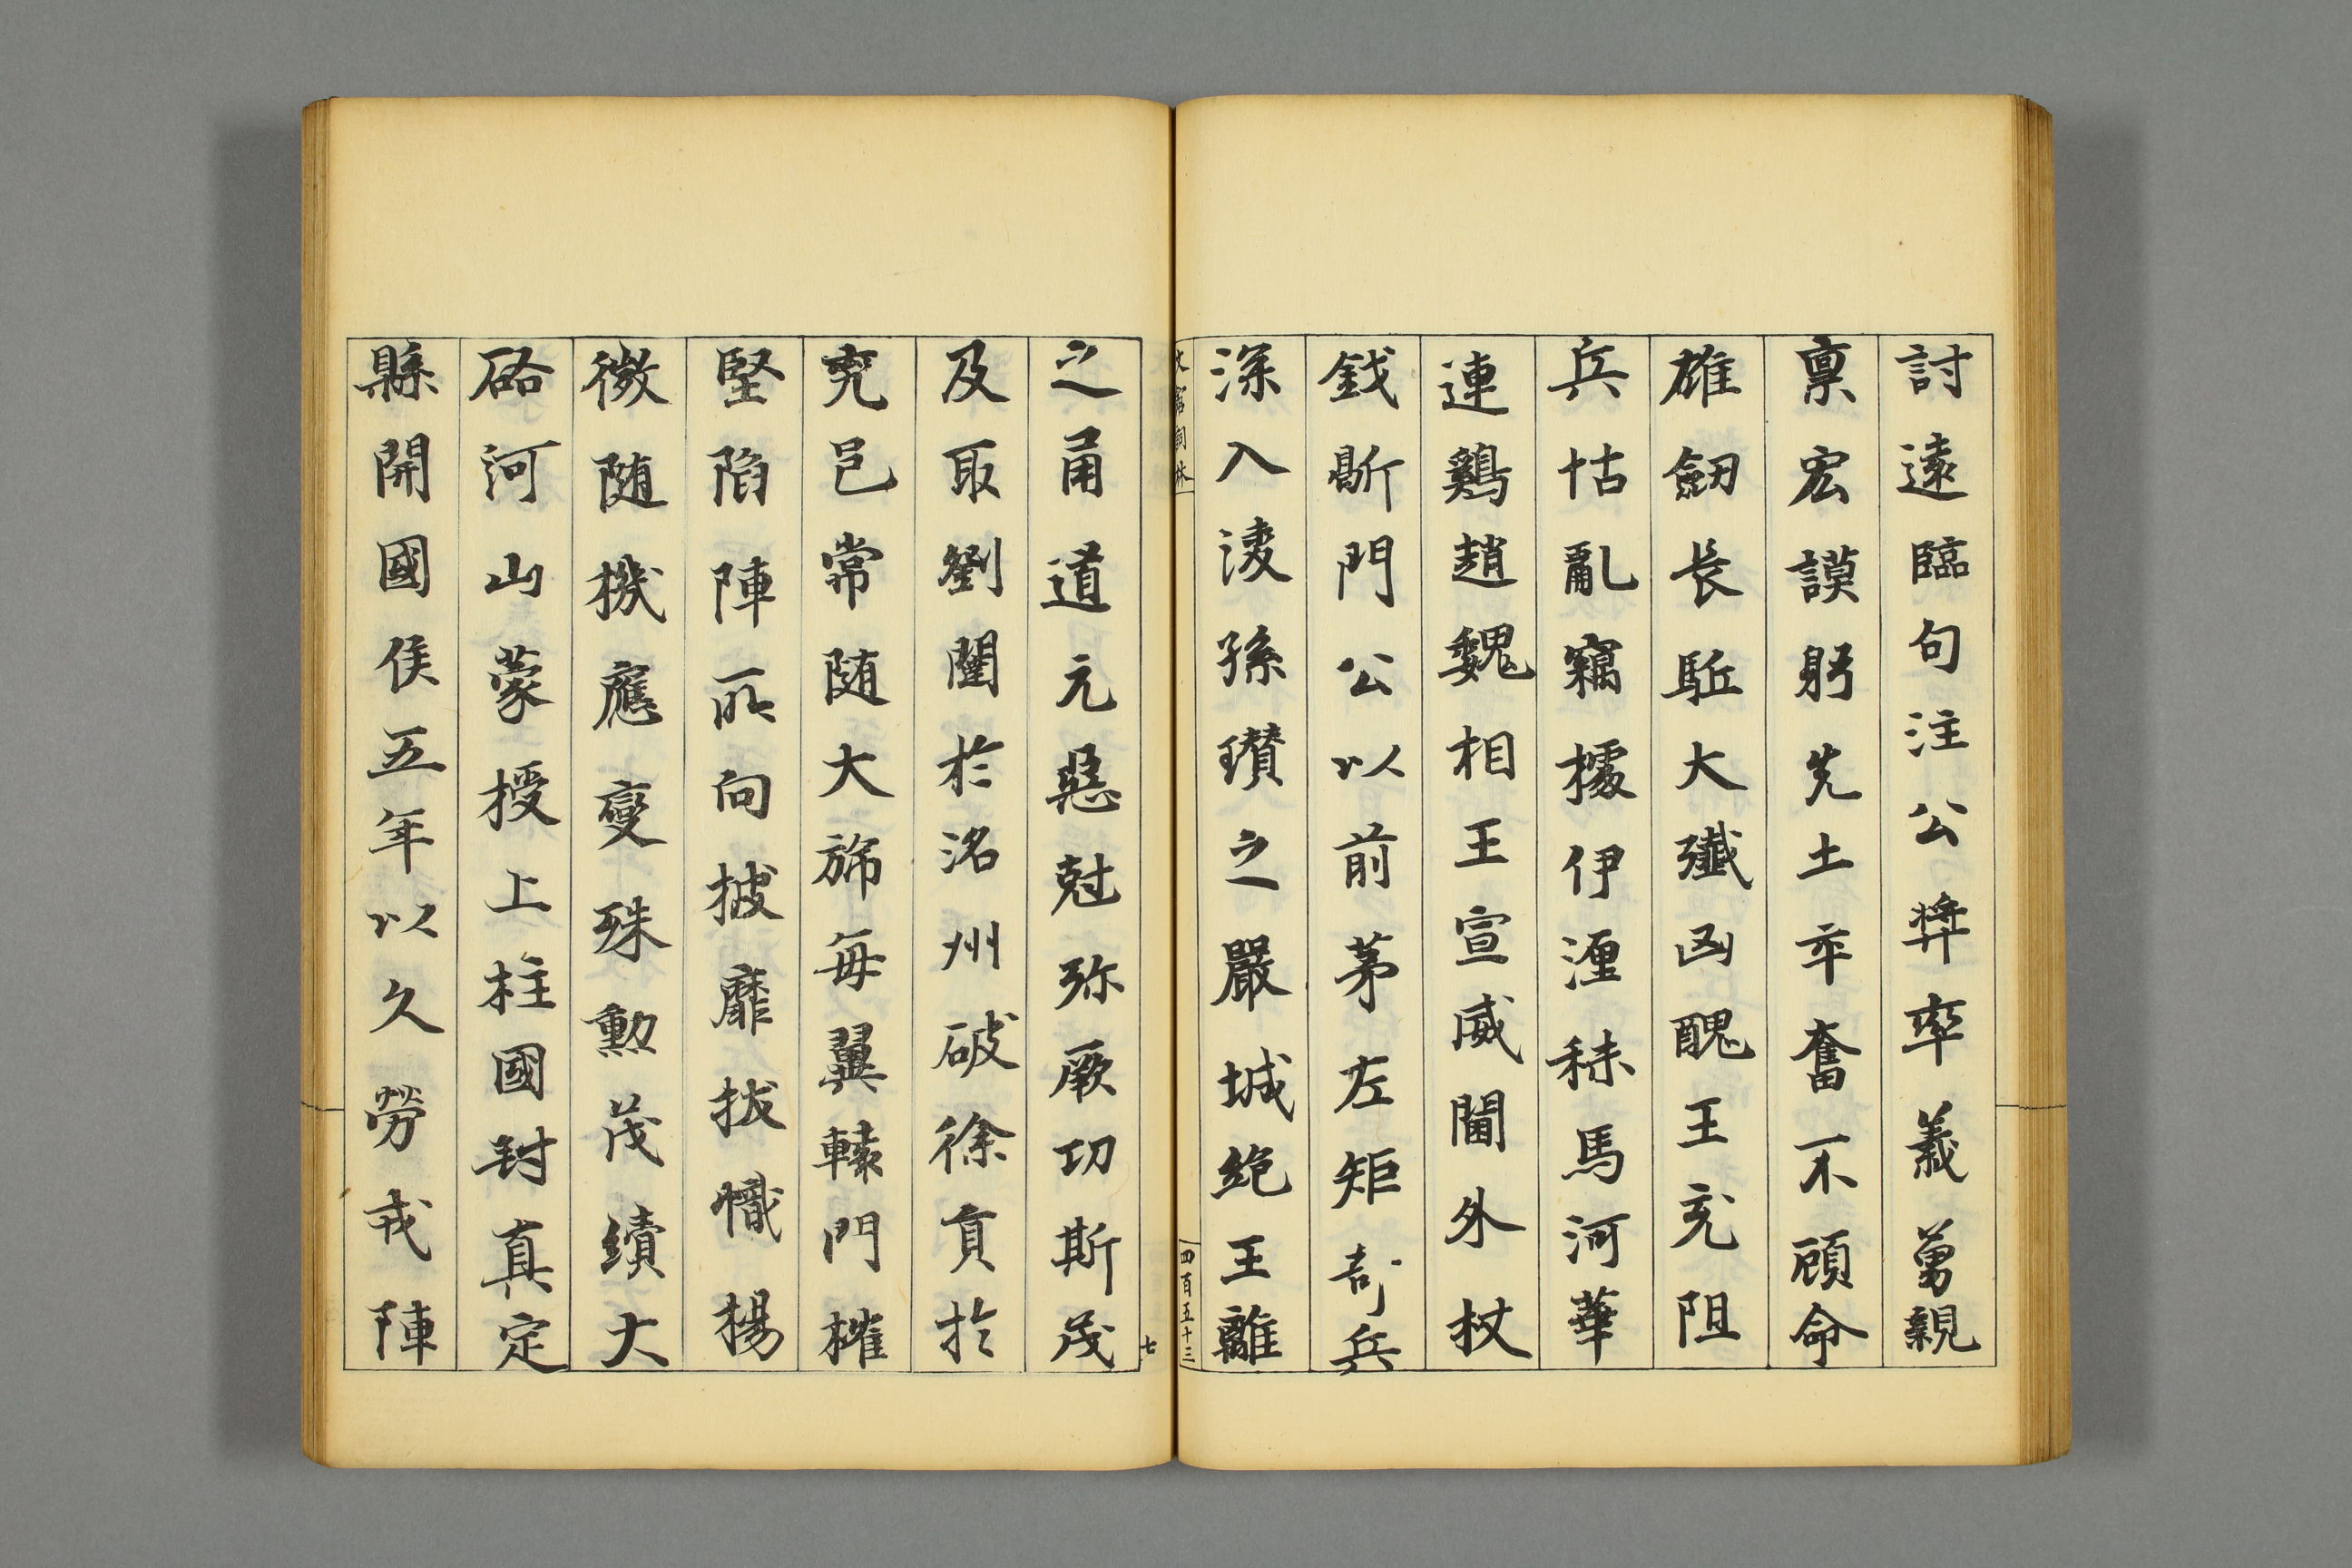 討遠臨句注公奬率義勇親
禀宏謨躬先士卒奮不顧命
雄劔長駈大殲凶醜王充阻
兵怙亂竊據伊湹秣馬河華
連鷄趙魏相王宣威閫外杖
鉞斳門公以前茅左矩奇兵
深入淩孫瓚之嚴城絶王離
文館詞林
四百五十三
七
之甬道元惡尅弥厥功斯茂
及取劉闥於洺州破徐員於
兖邑常随大斾每翼轅門摧
堅陷陣所向披靡拔幟揚
徽随機應變殊勲茂績大
啓河山蒙授上柱國封真定
縣開國侯五年以久勞戎陣